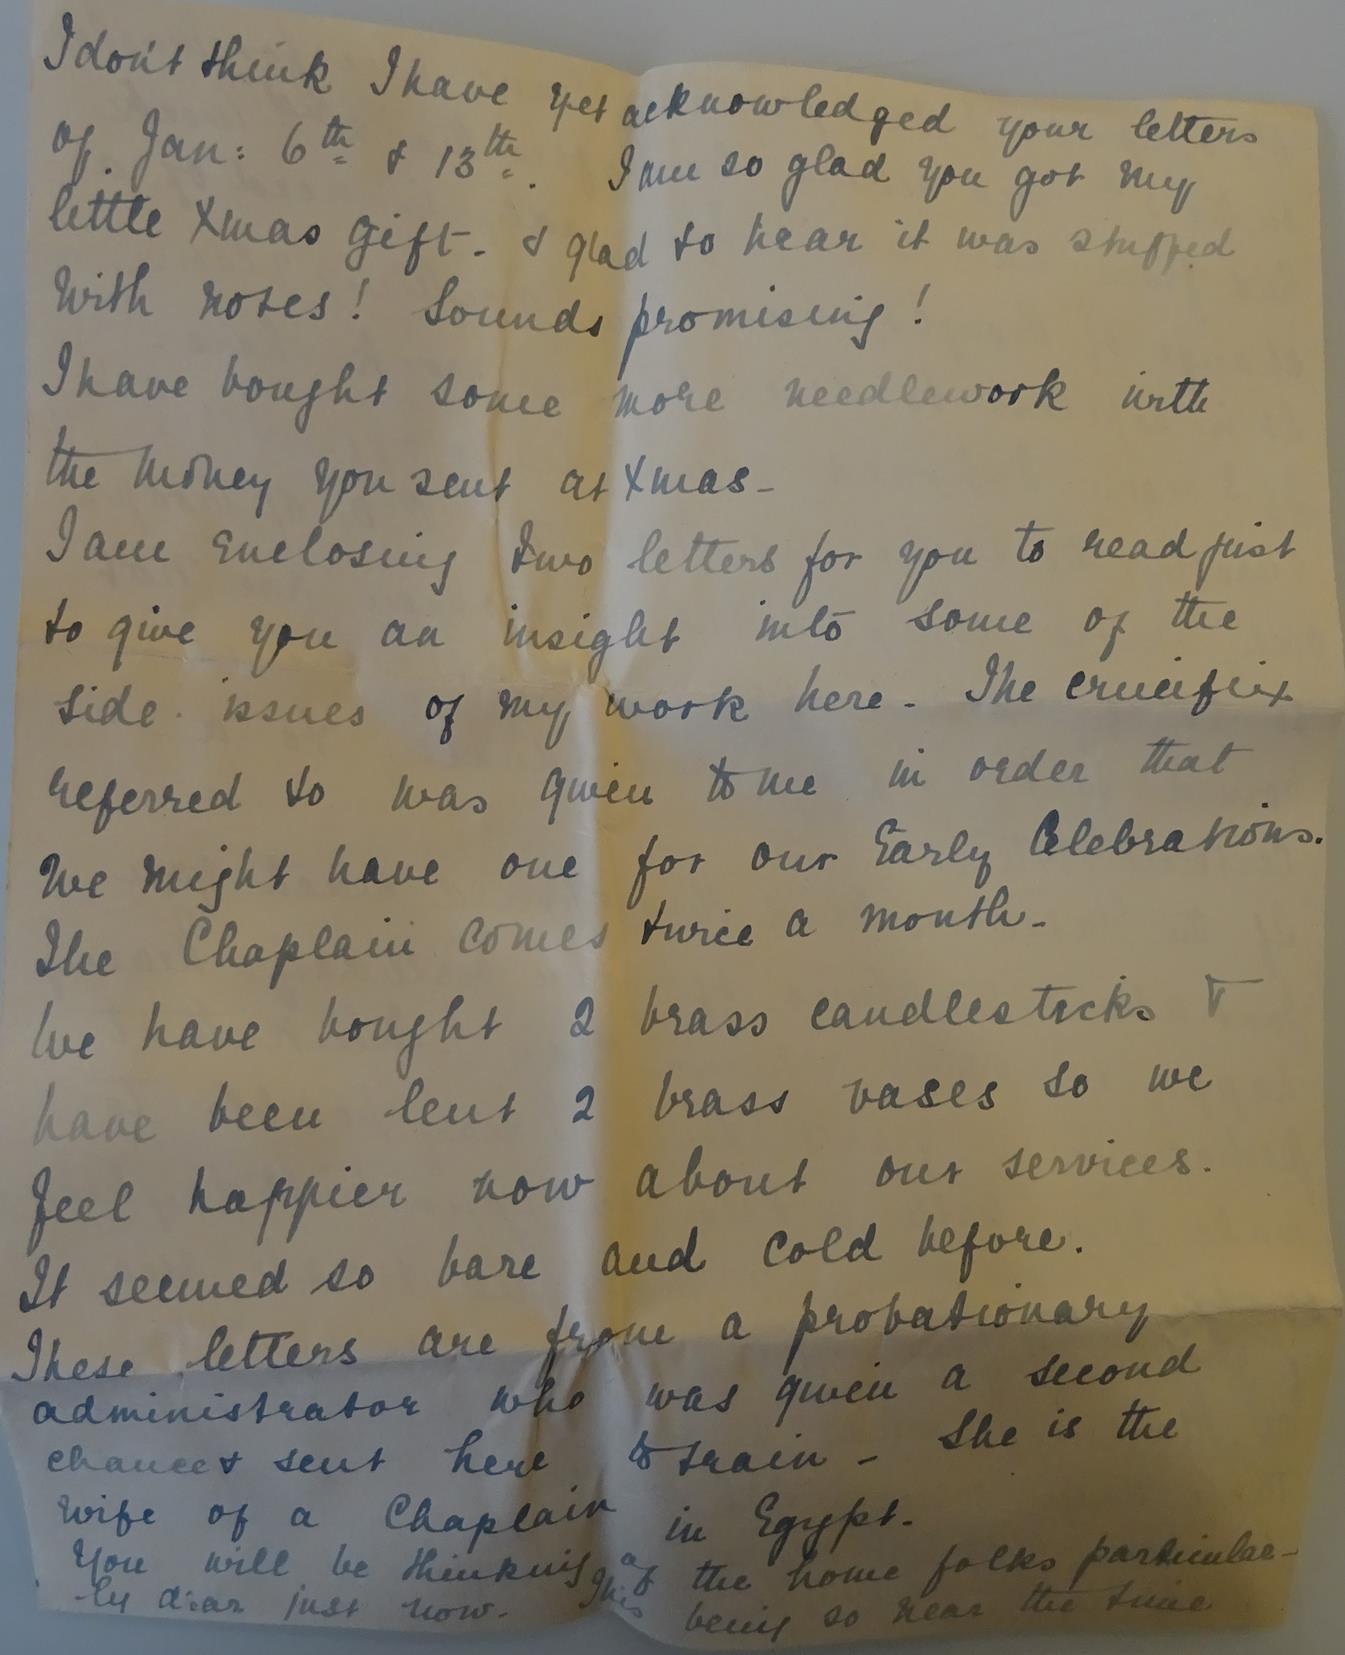 I don't think I have yet acknowledged your letters
of Jan: 6th & 13th. I am so glad you got my
little Xmas gift - & glad to hear it was stuffed
with notes! Sounds promising!
I have bought some more needlework with
the money you sent at Xmas -
I am enclosing two letters for you to read just
to give you an insight into some of the
side issues of my work here - The crucifix
referred to was given to me in order that
we might have one for our Early Celebrations.
The Chaplain comes twice a month -
We have bought 2 brass candlesticks &
have been lent 2 brass vases so we
feel happier now about our services.
It seemed so bare and cold before.
These letters are from a probationary
administrator who was given a second
chance & sent here to train - She is the
wife of a Chaplain in Egypt -
You will be thinking of the home folks particular-
ly dear just now - This being so near the time